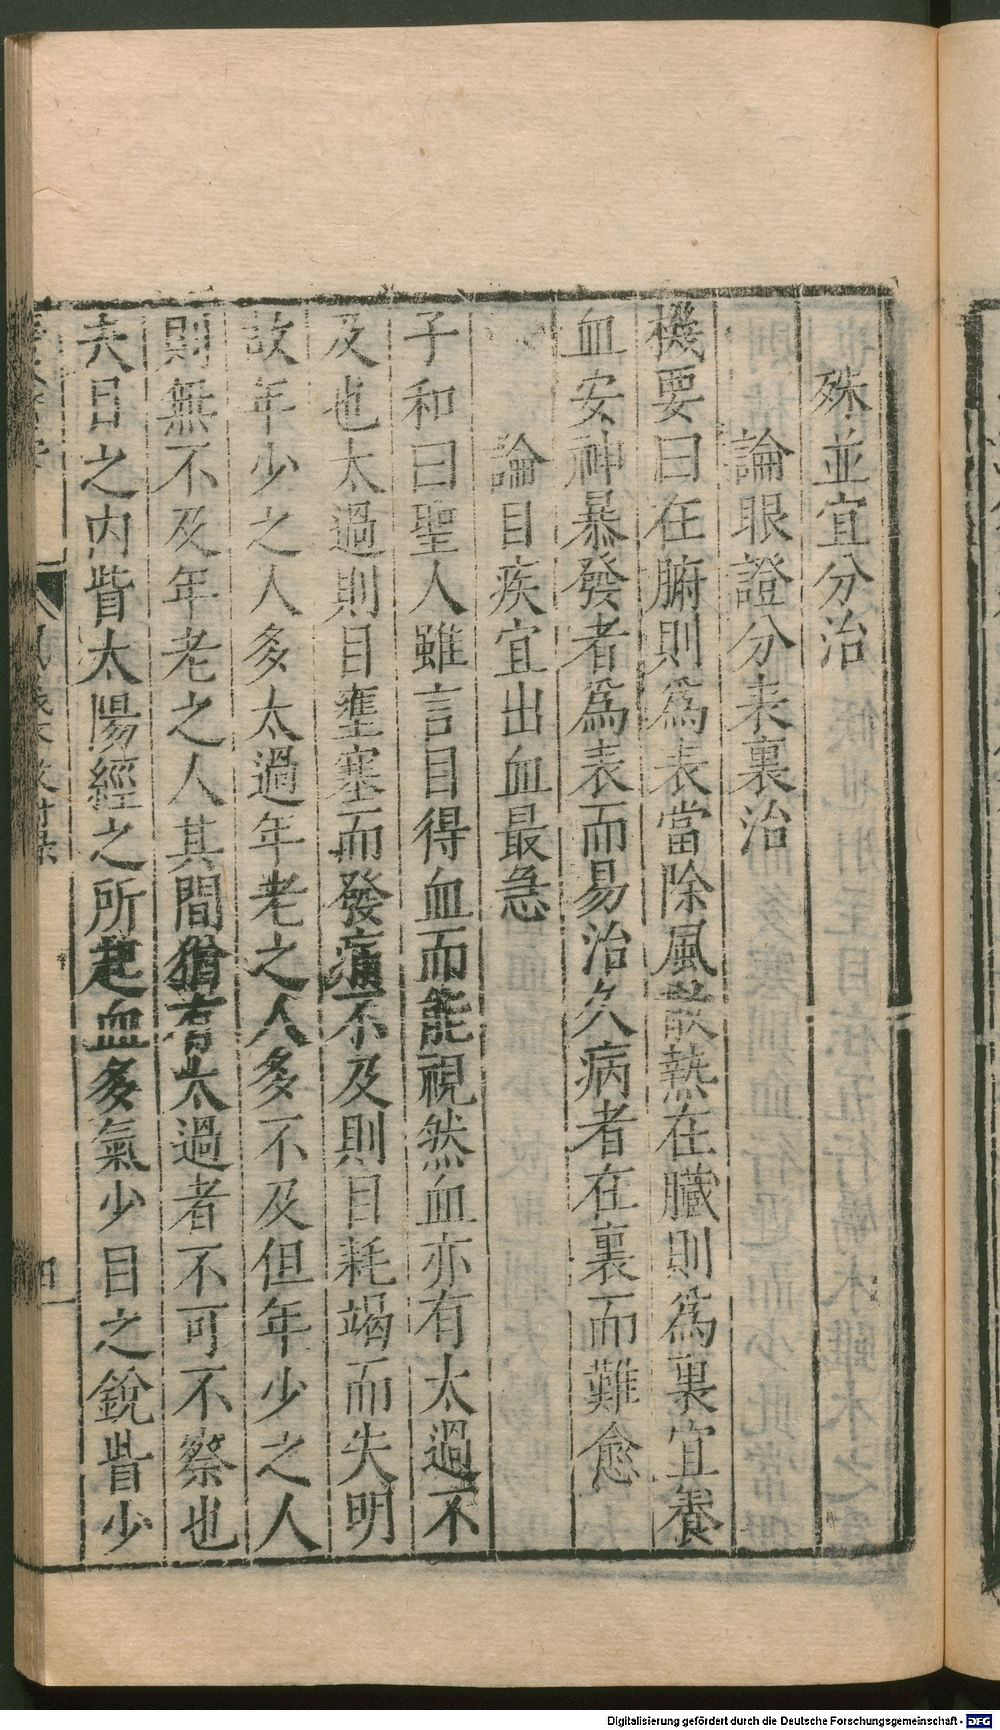 殊並宜分治
論眼證分表裏治
機要曰在腑則為表當除風散熱在臟則為裏宜養
血安神暴發者為表而易治久病者在裏而難愈
論目疾宜出血最急
子和曰聖人雖言目得血而能視然血亦有太過不
及也太過則目壅塞而發痛不及則目耗竭而失明
故年少之人多太過年老之人多不及但年少之人
則無不及年老之人其間猶有太過者不可不察也
夫目之內眥太陽經之所起血多氣少目之銳眥少
Digitalisierung gefördert durch die Deutsche Forschungsgemeinschaft - DFG